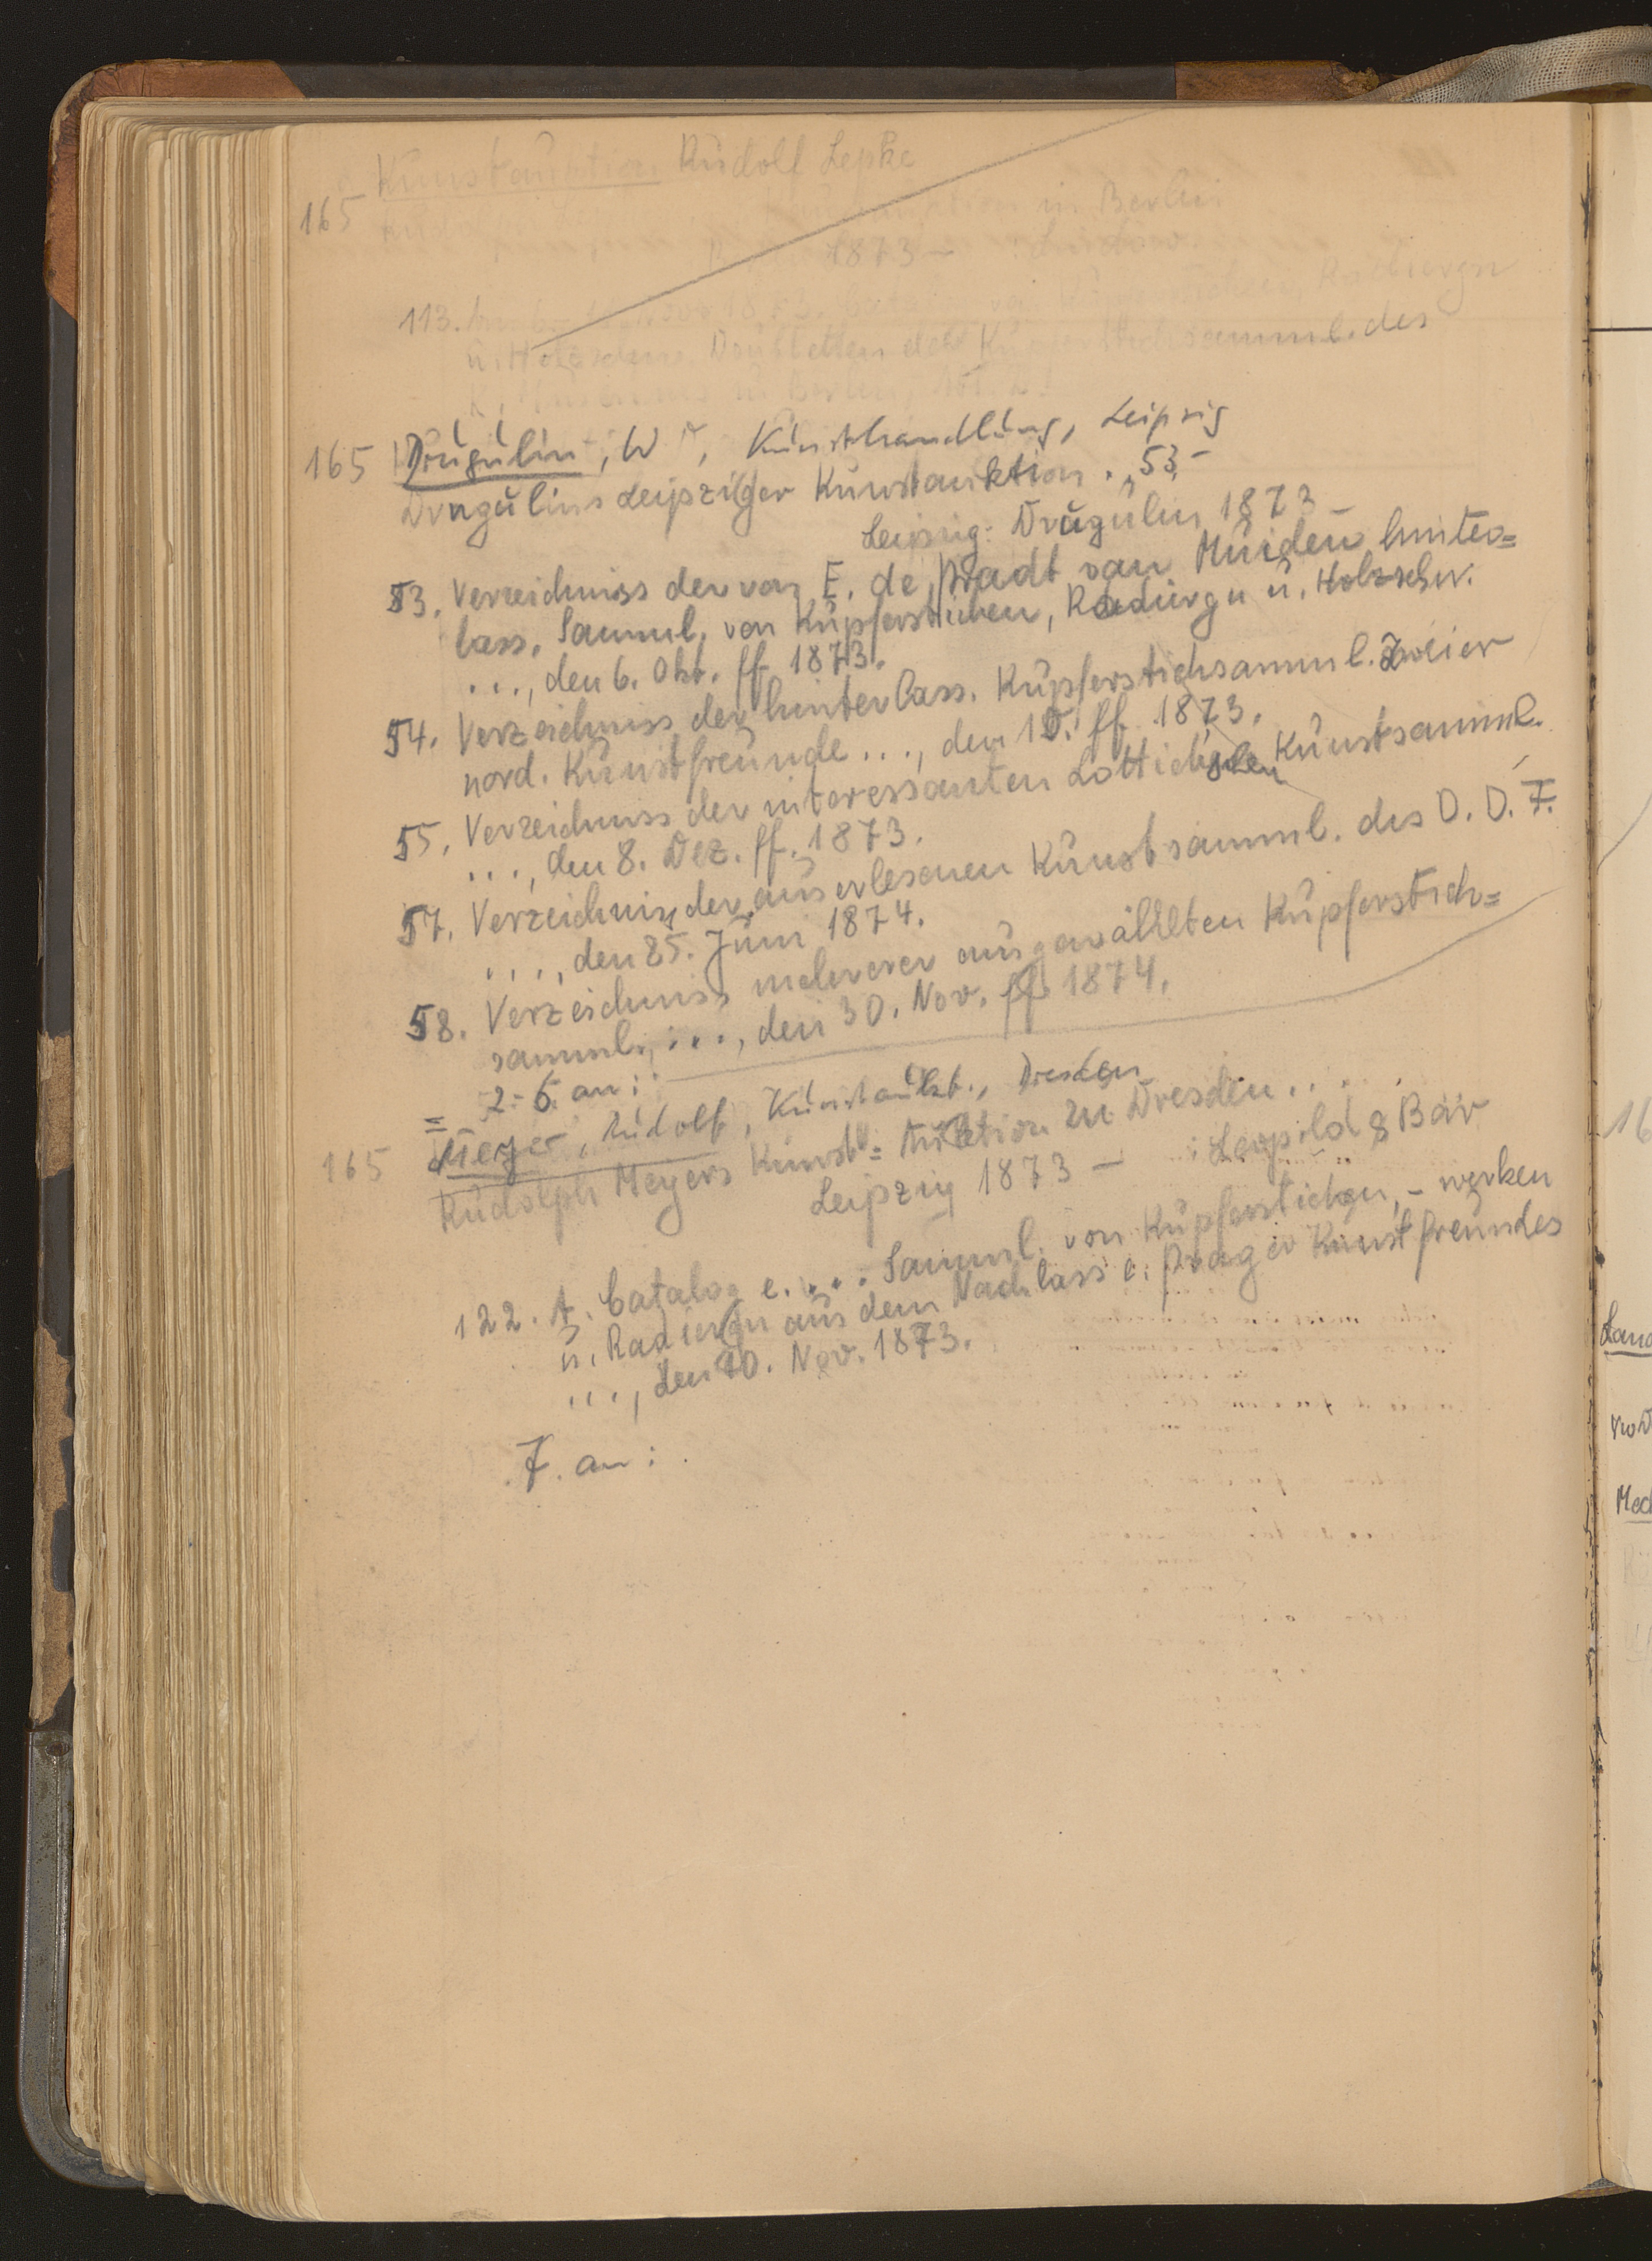 Kunstauktion Rudolf Lepke
165
auktion in Berlin
1873 –
113. 1873. von Kupferstichen, Radiergn
u. Holzschn. Doubletten der Kupferstichsamml. des
K. Museums in Berlin,
165 Drugulin, W., Kunsthandlung, Leipzig
Drugulins Leipziger Kunstauktion. 53 –
Leipzig: Drugulin 1873 –
53. Verzeichniss der von E. de Pradt van Muiden hinter=
lass. Samml. von Kupferstichen, Radiergn u. Holzschn.
..., den 6. Okt. ff 1873.
54. Verzeichniss der hinterlass. Kupferstichsamml. zweier
nord. Kunstfreunde ..., den ff 1873.
55. Verzeichniss der interessanten Kunstsamml.
..., den 8. Dez. ff. 1873.
57. Verzeichniss der auserlesenen Kunstsamml. des D. D. F.
...., den 25. Juni 1874.
58. Verzeichniss mehrerer ausgewählten Kupferstich=
samml., ..., den 30. Nov. ff 1874.
= 2-6. an:
165 Meyer, Rudolf, Kunstaukt., Dresden
Rudolph Meyers Kunst=Auktion zu Dresden ....
Leipzig 1873 – : Leopold & Bär
122. Catalog e. .... Samml. von Kupferstichen, - werken
u. Radiergn aus dem Nachlass e. Prager Kunstfreundes
..., den 10. Nov. 1873.
7. an:
16
Land
Med